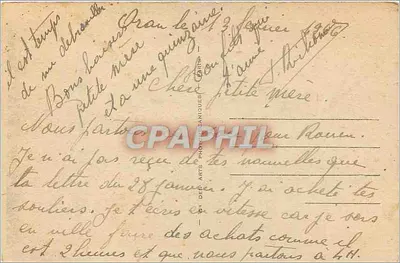 Oran le 13 février
Chère petite mère.
Nous partons pour Rouen.
Je n'ai pas reçu de tes nouvelles que
ta lettre du 28 janvier. J'ai acheté tes
souliers. Je t'écris en vitesse car je vais
en ville faire des achats comme il
est 2 heures et que nous partons à 4H.
il est temps
de me débrouiller
Bons baisers
petite mère
et à une quinzaine.
Ton fils qui
t'aime
CPAPHIL